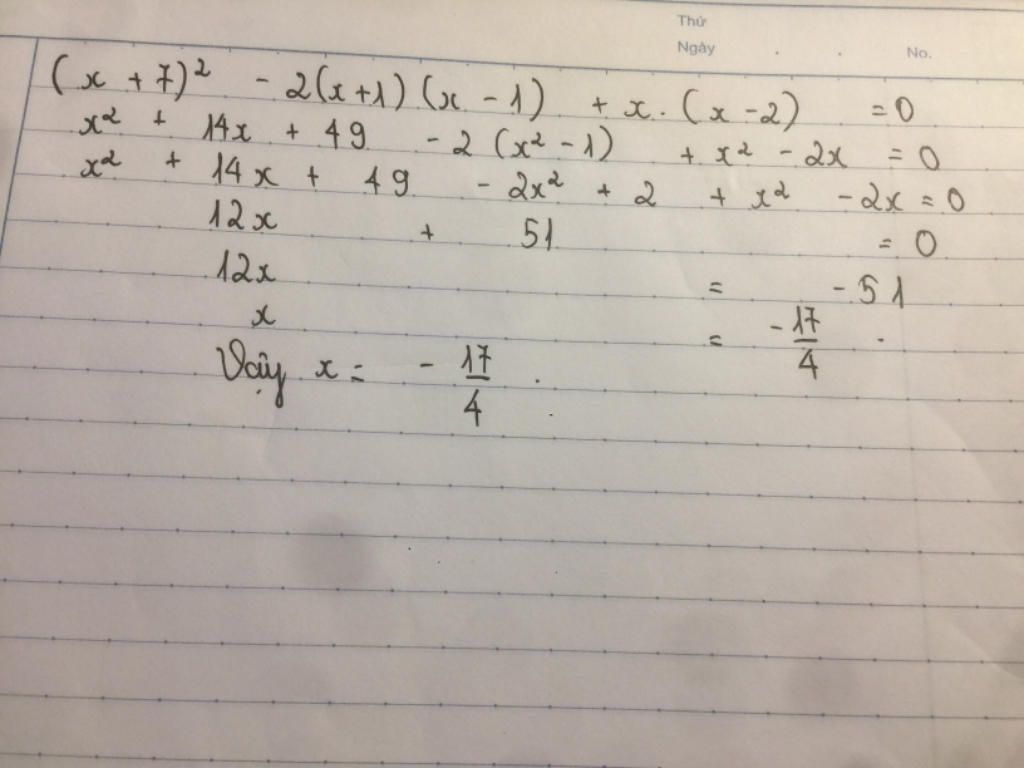 Thứ
Ngày . . No.
(x + 7)² - 2(x+1)(x - 1) + x. (x - 2) = 0
x² + 14x + 49 - 2 (x² - 1) + x² - 2x = 0
x² + 14x + 49 - 2x² + 2 + x² - 2x = 0
12x + 51 = 0
12x = -51
x = -17/4 .
Vậy x = - 17/4 .